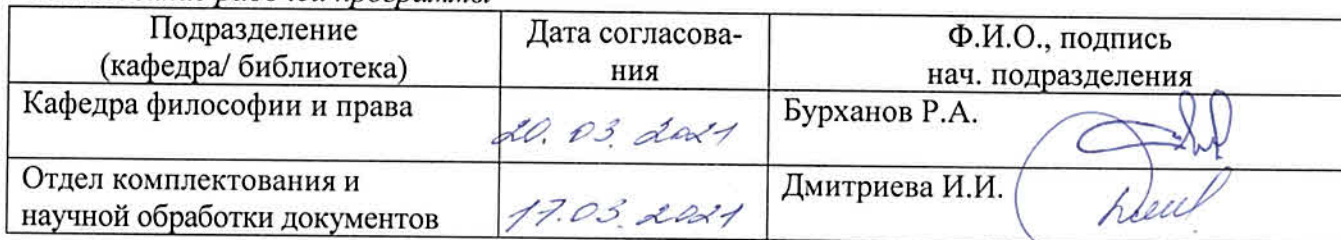 рабочей программы
Подразделение
(кафедра/ библиотека)
Дата согласова-
ния
Ф.И.О., подпись
нач. подразделения
Кафедра философии и права
20.03.2021
Бурханов Р.А.
Отдел комплектования и
научной обработки документов
17.03.2021
Дмитриева И.И.